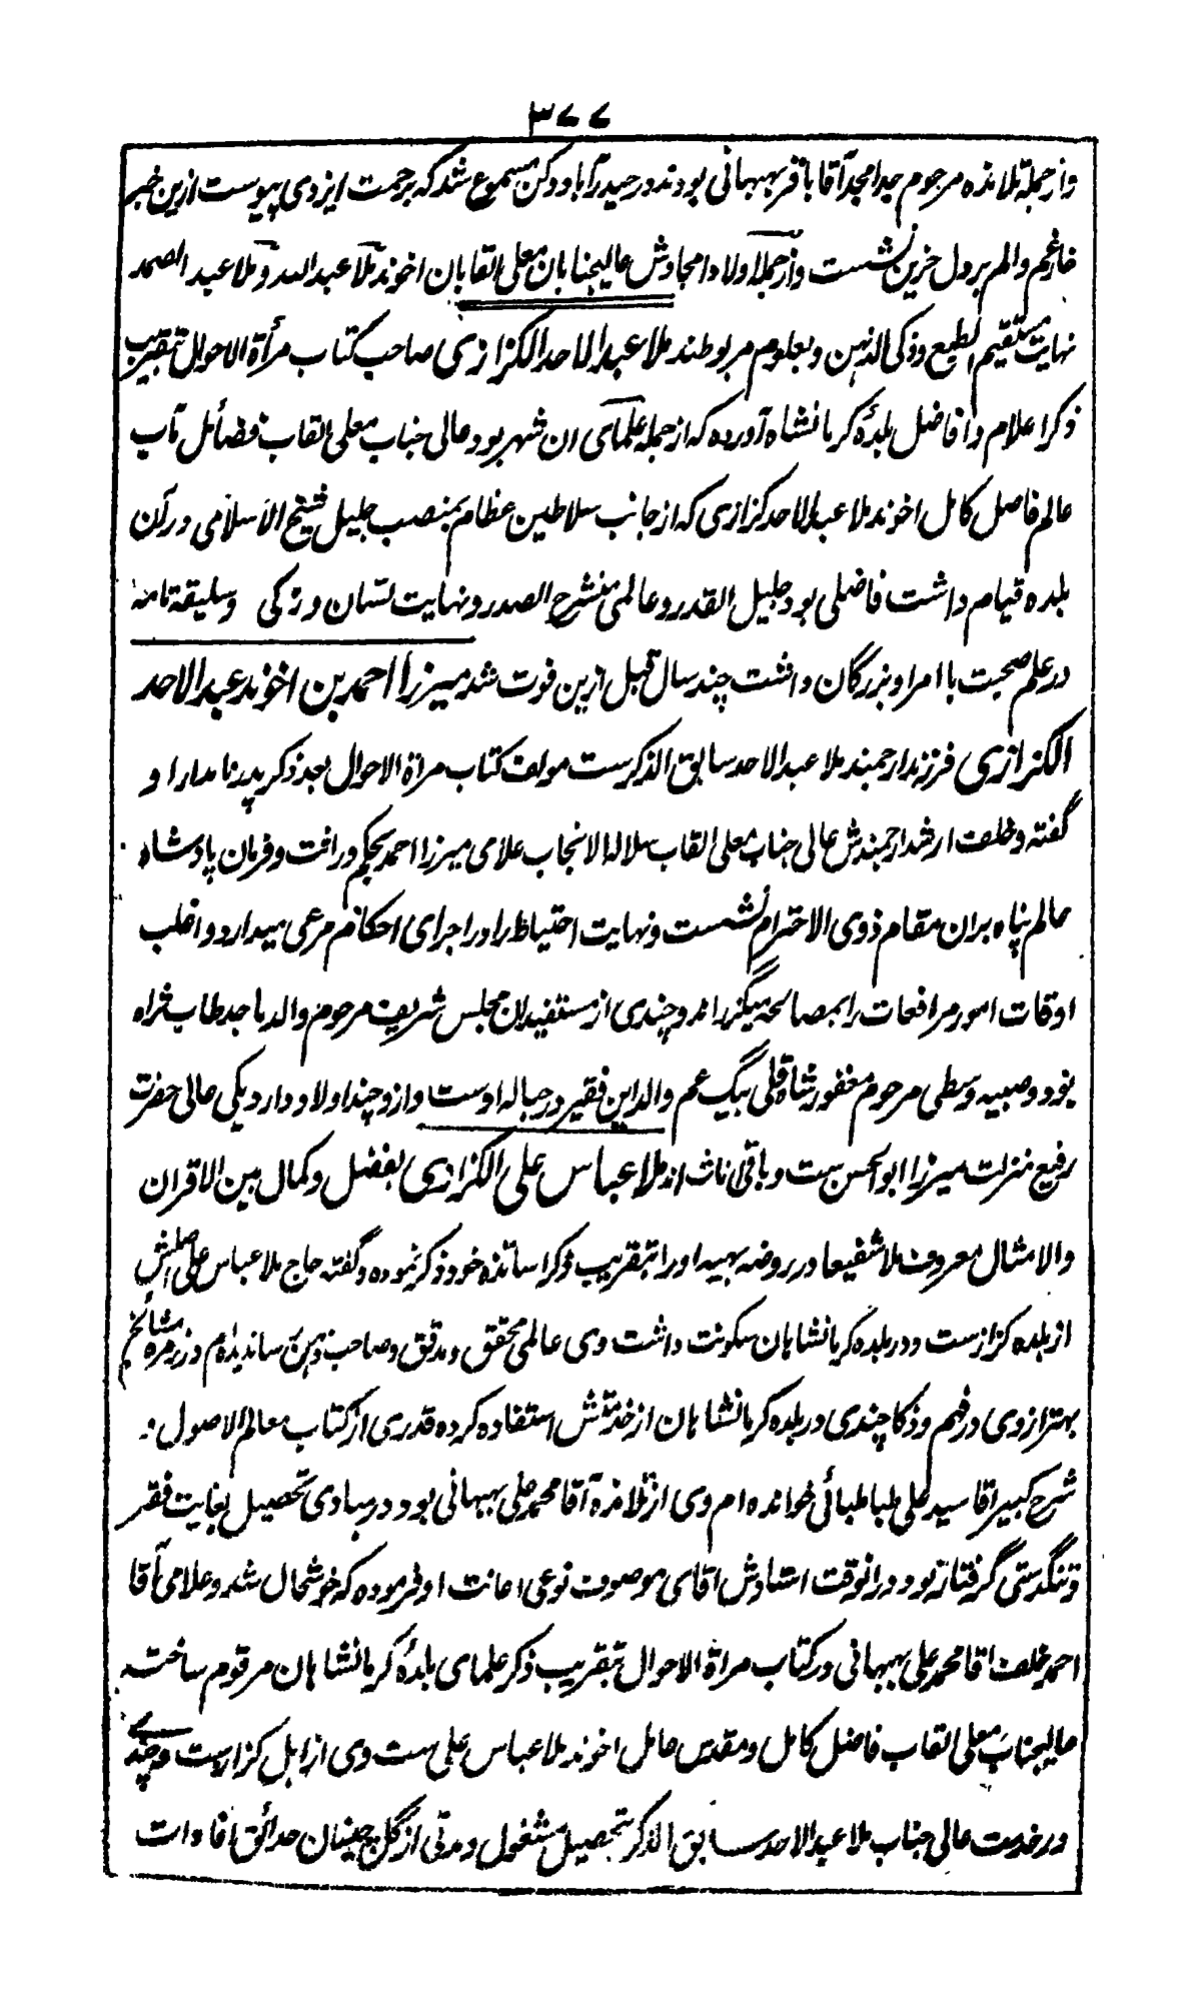 ۳۷۷
و از جمله تلامذه مرحوم جد امجد آقا باقر بهبهانی بودند در حیدرآباد دکن مسموع شد که برحمت ایزدی پیوست ازین خبر
خار غم و الم بر دل حزین نشست و از جمله اولاد امجادش عالیجنابان معلی القابان اخوند ملا عبد الله و ملا عبد الصمد
نهایت مستقیم الطبع و ذکی الذهن و بعلوم مربوطند ملا عبد الاحد الکزازی صاحب کتاب مرأة الاحوال بتقریب
ذکر اعلام و افاضل بلدهٔ کرمانشاه آورده که از جمله علمای ان شهر بود عالی جناب معلی القاب فضائل مآب
عالم فاضل کامل اخوند ملا عبد الاحد کزازی که از جانب سلاطین عظام بمنصب جلیل شیخ الاسلامی در آن
بلده قیام داشت فاضلی بود جلیل القدر و عالمی منشرح الصدر و نهایت لسّان و زکی و سلیقه تامه
در علم صحبت با امرا و بزرگان داشت چند سال قبل ازین فوت شد میرزا احمد بن اخوند عبد الاحد
الکزازی فرزند ارجمند ملا عبد الاحد سابق الذکرست مولف کتاب مراة الاحوال بعد ذکر پدر نامدار او
گفته و خلف ارشد ارجمندش عالی جناب معلی القاب سلالة الانجاب علامی میرزا احمد بحکم وراثت و فرمان پادشاه
عالم پناه بران مقام ذوی الاحترام نشست و نهایت احتیاط را در اجرای احکام مرعی میدارد و اغلب
اوقات امور مرافعات را بمصالحه میگذراند و چندی از مستفیدان مجلس شریف مرحوم والد ماجد طاب ثراه
بود و صبیه وسطی مرحوم مغفور شاه قلی بیگ عم والد این فقیر در حباله اوست و ازو چند اولاد دارد یکی عالی حضرت
رفیع منزلت میرزا ابو الحسن ست و باقی اناث اند ملا عباس علی الکزازی بفضل و کمال بین الاقران
والامثال معروف ملا شفیعا در روضه بهیه اورا بتقریب ذکر اساتذه خود ذکر نموده و گفته حاج ملا عباس علی اصلش
از بلده کزازست و در بلده کرمانشاهان سکونت داشت وی عالمی محقق و مدقق و صاحب ذهن ندیدم در زمره مشائخم
بهتر از وی در فهم و ذکا چندی در بلده کرمانشاهان از خدمتش استفاده کرده قدری از کتاب معالم الاصول و
شرح کبیر اقا سید علی طباطبائی خوانده ام وی از تلامذه آقا محمد علی بهبهانی بود در مبادی تحصیل بغایت فقر
و تنگدستی گرفتار بود در انوقت استادش اقای موصوف نوعی اعانت او فرموده که خوشحال شد و علامی آقا
احمد خلف اقا محمد علی بهبهانی در کتاب مراة الاحوال بتقریب ذکر علمای بلدهٔ کرمانشاهان مرقوم ساخته
عالیجناب معلی القاب فاضل کامل و مقدس عامل اخوند ملا عباس علی ست وی از اهل کزازست و چندی
در خدمت عالی جناب ملا عبد الاحد سابق الذکر بتحصیل مشغول و مدتی از گل چینان حدائق افادات